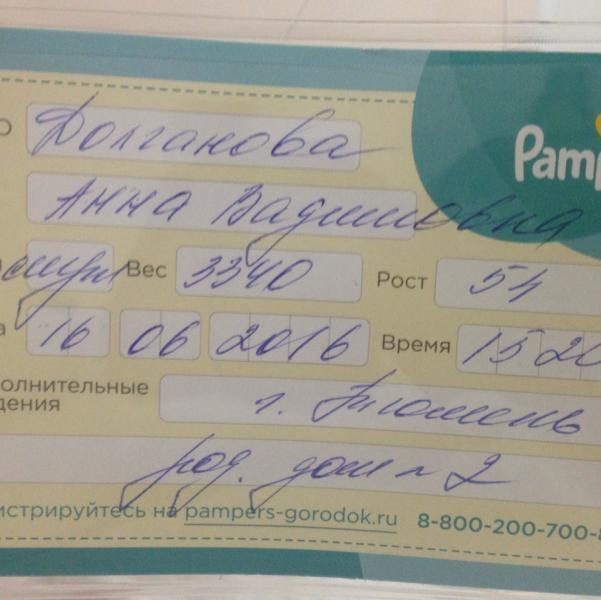 Pamp
О Долганова
Анна Вадимовна
муж Вес 3340 Рост 54
а 16 06 2016 Время 15 20
полнительные
дения г. Тюмень
род. дом № 2
истрируйтесь на pampers-gorodok.ru 8-800-200-700-